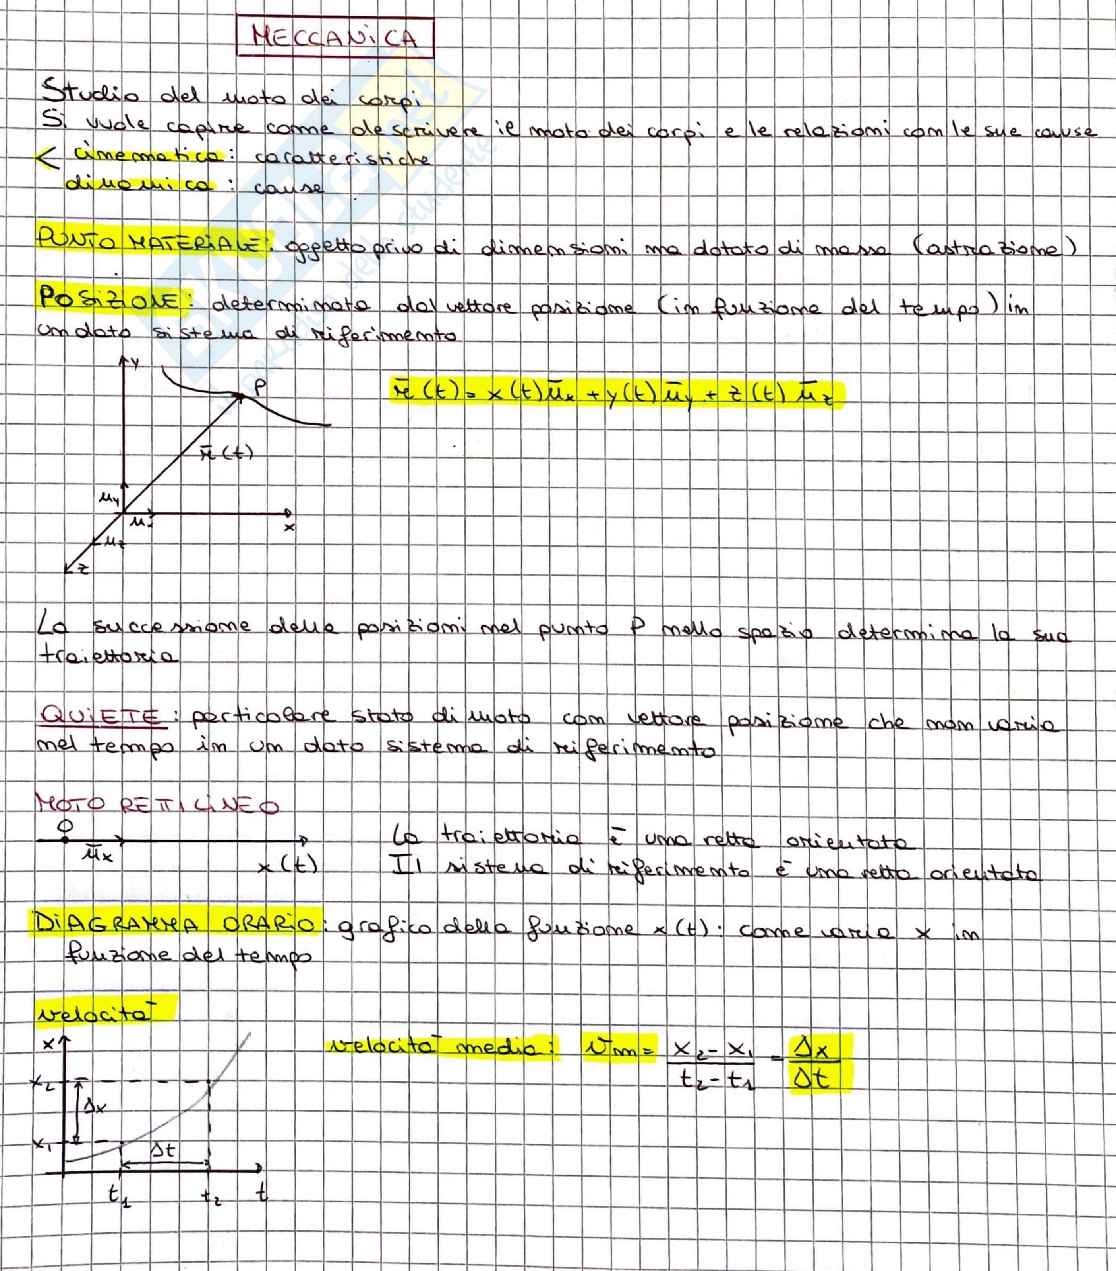 MECCANICA
Studio del moto dei corpi
Si vuole capire come descrivere il moto dei corpi e le relazioni con le sue cause
< cinematica: caratteristiche
dinamica: cause
PUNTO MATERIALE: oggetto privo di dimensioni ma dotato di massa (astrazione)
POSIZIONE: determinata dal vettore posizione (in funzione del tempo) in
un dato sistema di riferimento
y
P
r̄(t) = x(t)ūx + y(t)ūy + z(t)ūz
r̄(t)
uy
u
x
uz
z
La successione delle posizioni nel punto P nello spazio determina la sua
traiettoria
QUIETE: particolare stato di moto con vettore posizione che non varia
nel tempo in un dato sistema di riferimento
MOTO RETTILINEO
O
La traiettoria è una retta orientata
ūx
x(t)
Il sistema di riferimento è una retta orientata
DIAGRAMMA ORARIO: grafico della funzione x(t): come varia x in
funzione del tempo
velocità
x
velocità media: vm = x2-x1 / t2-t1 = Δx / Δt
x2
Δx
x1
Δt
t1 t2 t